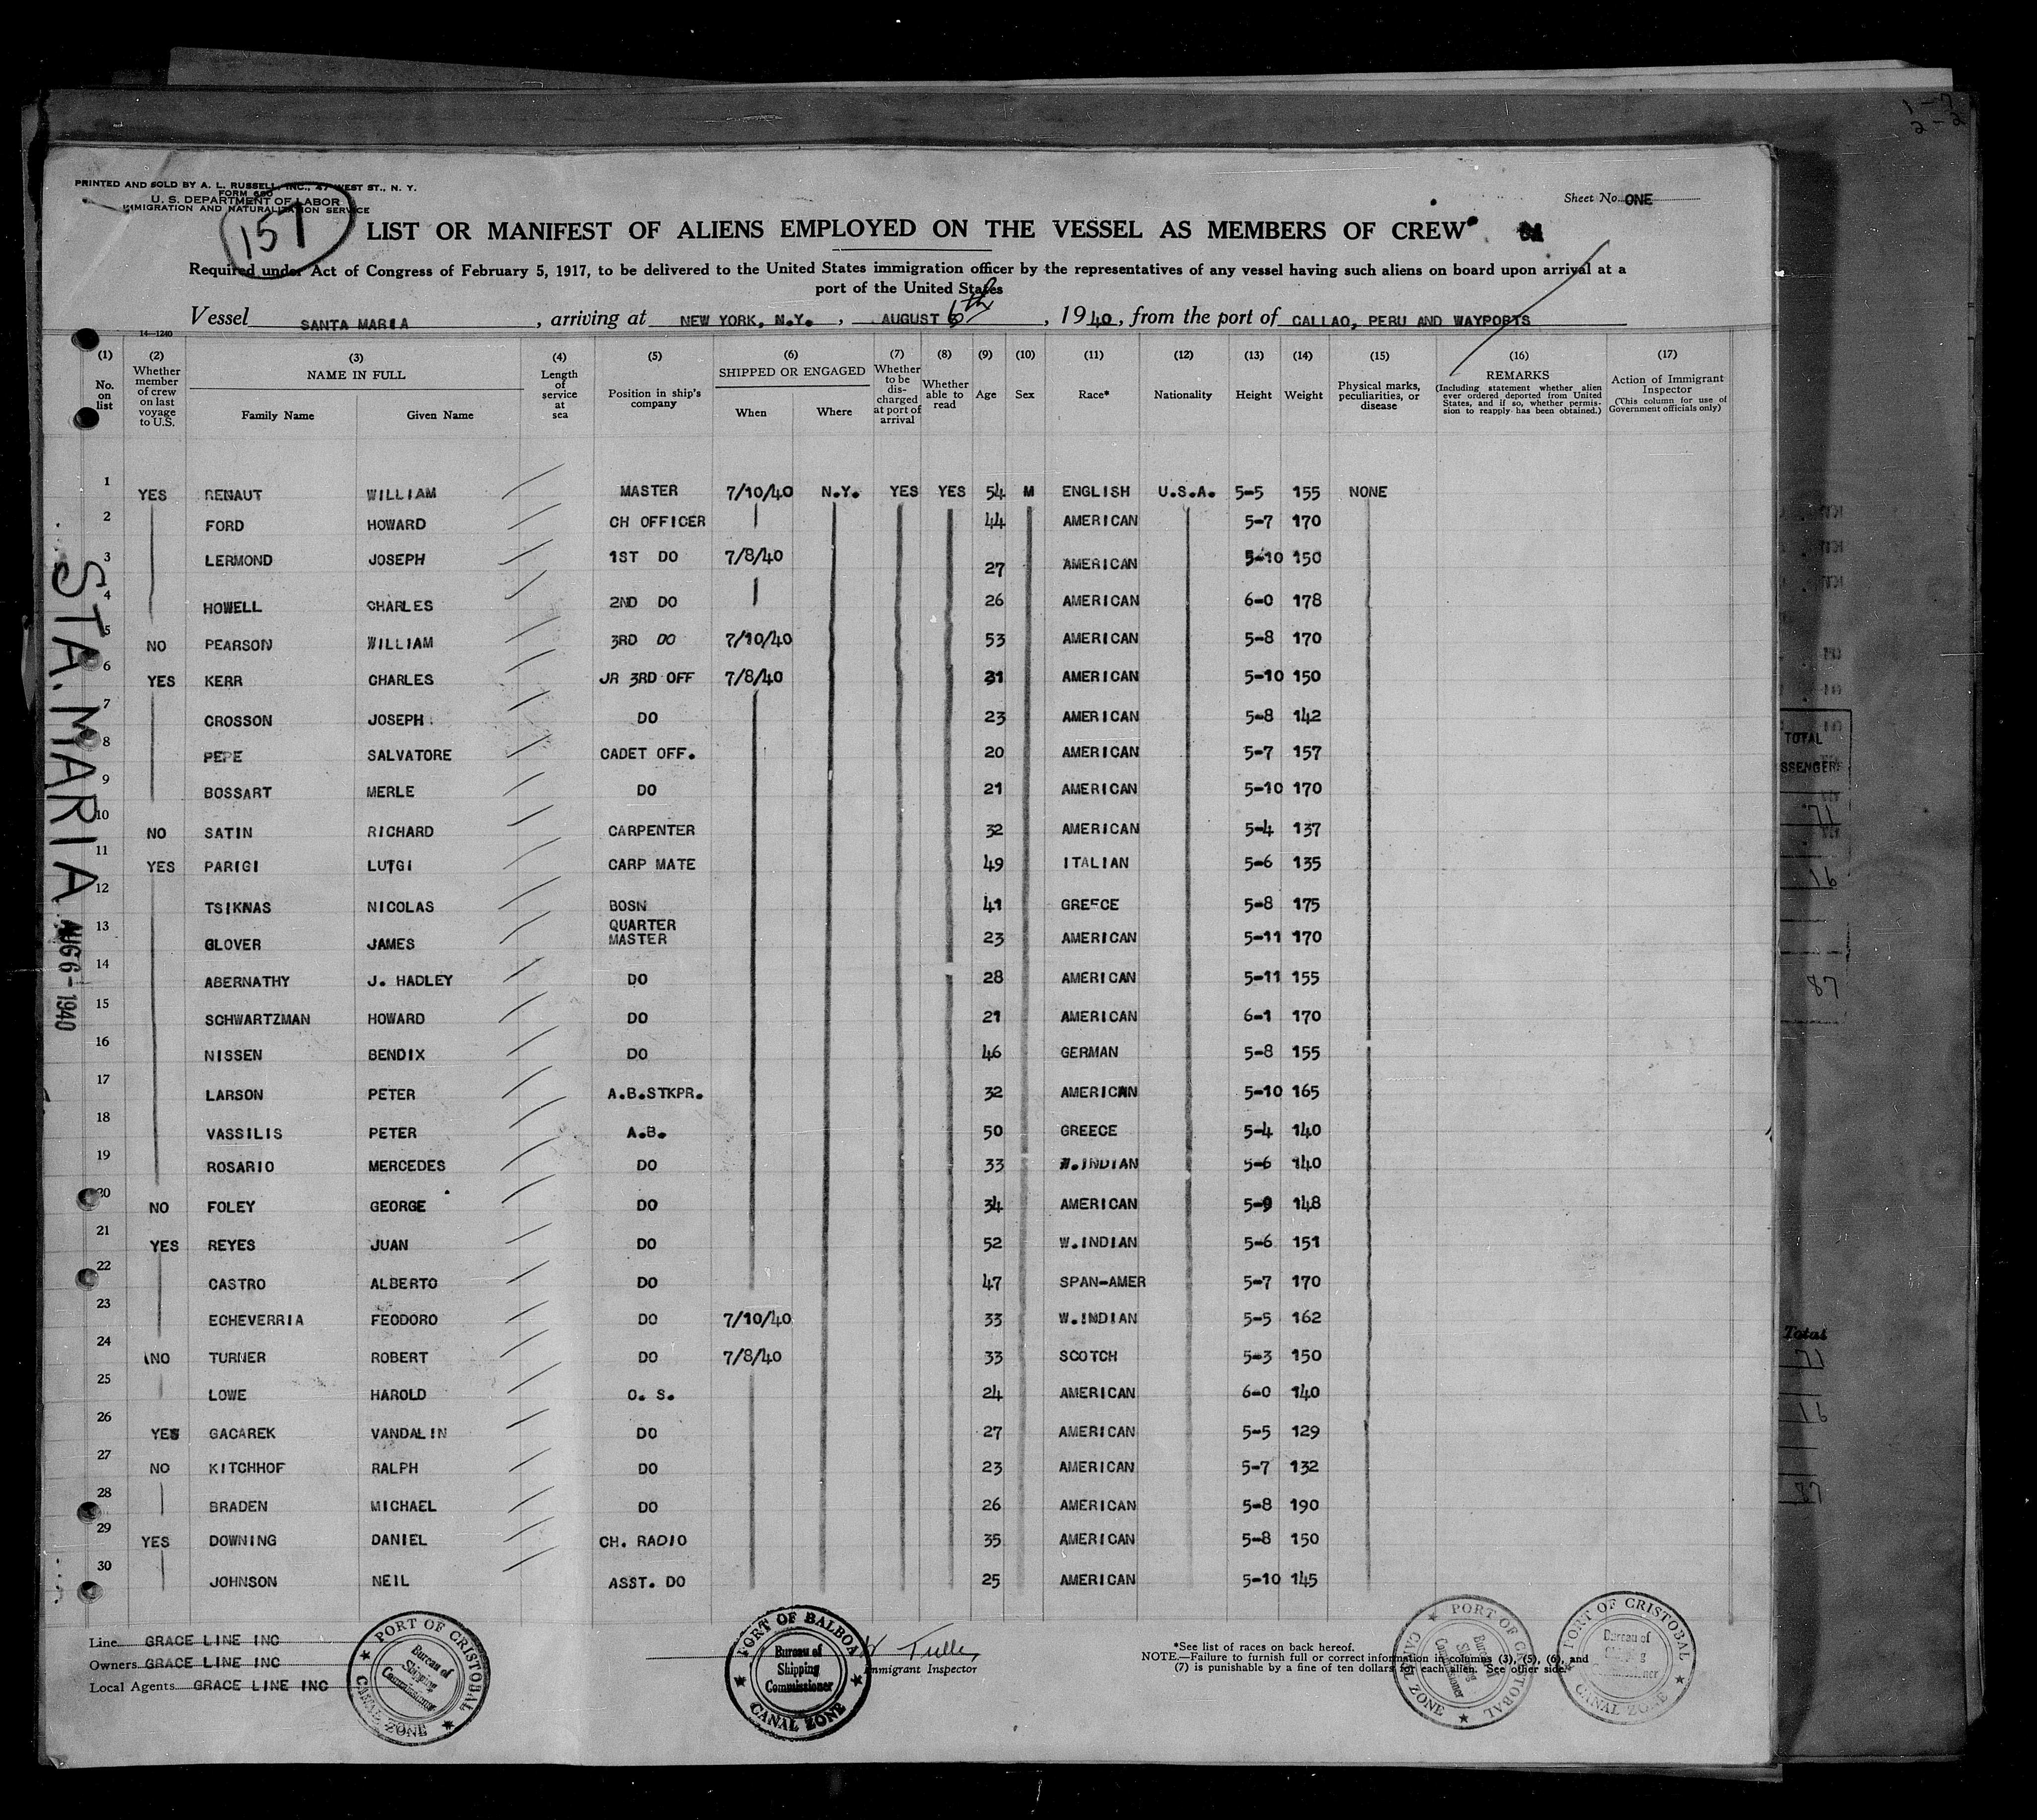 PRINTED AND SOLD BY A. L. RUSSELL, INC., 47 WEST ST., N. Y.
FORM 680
U. S. DEPARTMENT OF LABOR
IMMIGRATION AND NATURALIZATION SERVICE
157
Sheet No. ONE
LIST OR MANIFEST OF ALIENS EMPLOYED ON THE VESSEL AS MEMBERS OF CREW
Required under Act of Congress of February 5, 1917, to be delivered to the United States immigration officer by the representatives of any vessel having such aliens on board upon arrival at a
port of the United States
Vessel SANTA MARIA, arriving at NEW YORK, N.Y., AUGUST 6th, 1940, from the port of CALLAO, PERU AND WAYPORTS
14-1240
(1) No. on list
(2) Whether member of crew on last voyage to U.S.
(3) NAME IN FULL Family Name Given Name
(4) Length of service at sea
(5) Position in ship's company
(6) SHIPPED OR ENGAGED When Where
(7) Whether to be discharged at port of arrival
(8) Whether able to read
(9) Age
(10) Sex
(11) Race*
(12) Nationality
(13) Height
(14) Weight
(15) Physical marks, peculiarities, or disease
(16) REMARKS (Including statement whether alien ever ordered deported from United States, and if so, whether permission to reapply has been obtained.)
(17) Action of Immigrant Inspector (This column for use of Government officials only)
1 YES RENAUT WILLIAM MASTER 7/10/40 N.Y. YES YES 54 M ENGLISH U.S.A. 5-5 155 NONE
2 FORD HOWARD CH OFFICER 44 AMERICAN 5-7 170
3 LERMOND JOSEPH 1ST DO 7/8/40 27 AMERICAN 5-10 150
4 HOWELL CHARLES 2ND DO 26 AMERICAN 6-0 178
5 NO PEARSON WILLIAM 3RD DO 7/10/40 53 AMERICAN 5-8 170
6 YES KERR CHARLES JR 3RD OFF 7/8/40 31 AMERICAN 5-10 150
7 CROSSON JOSEPH DO 23 AMERICAN 5-8 142
8 PEPE SALVATORE CADET OFF. 20 AMERICAN 5-7 157
9 BOSSART MERLE DO 21 AMERICAN 5-10 170
10 NO SATIN RICHARD CARPENTER 32 AMERICAN 5-4 137
11 YES PARIGI LUIGI CARP MATE 49 ITALIAN 5-6 135
12 TSIKNAS NICOLAS BOSN 41 GREECE 5-8 175
13 GLOVER JAMES QUARTER MASTER 23 AMERICAN 5-11 170
14 ABERNATHY J. HADLEY DO 28 AMERICAN 5-11 155
15 SCHWARTZMAN HOWARD DO 21 AMERICAN 6-1 170
16 NISSEN BENDIX DO 46 GERMAN 5-8 155
17 LARSON PETER A.B.STKPR. 32 AMERICAN 5-10 165
18 VASSILIS PETER A.B. 50 GREECE 5-4 140
19 ROSARIO MERCEDES DO 33 W.INDIAN 5-6 140
20 NO FOLEY GEORGE DO 34 AMERICAN 5-9 148
21 YES REYES JUAN DO 52 W.INDIAN 5-6 151
22 CASTRO ALBERTO DO 47 SPAN-AMER 5-7 170
23 ECHEVERRIA FEODORO DO 7/10/40 33 W.INDIAN 5-5 162
24 NO TURNER ROBERT DO 7/8/40 33 SCOTCH 5-3 150
25 LOWE HAROLD O. S. 24 AMERICAN 6-0 140
26 YES GACAREK VANDALIN DO 27 AMERICAN 5-5 129
27 NO KITCHHOF RALPH DO 23 AMERICAN 5-7 132
28 BRADEN MICHAEL DO 26 AMERICAN 5-8 190
29 YES DOWNING DANIEL CH. RADIO 35 AMERICAN 5-8 150
30 JOHNSON NEIL ASST. DO 25 AMERICAN 5-10 145
STA. MARIA AUG 6-1940
Line GRACE LINE INC
Owners GRACE LINE INC
Local Agents GRACE LINE INC
PORT OF CRISTOBAL Bureau of Shipping Commissioner CANAL ZONE
PORT OF BALBOA Bureau of Shipping Commissioner CANAL ZONE
Immigrant Inspector
*See list of races on back hereof.
NOTE.—Failure to furnish full or correct information in columns (3), (5), (6), and
(7) is punishable by a fine of ten dollars for each alien. See other side.
PORT OF CRISTOBAL Bureau of Shipping Commissioner CANAL ZONE
PORT OF CRISTOBAL Bureau of Shipping Commissioner CANAL ZONE
1-7
2-2
TOTAL
71
16
87
Total
71
16
87